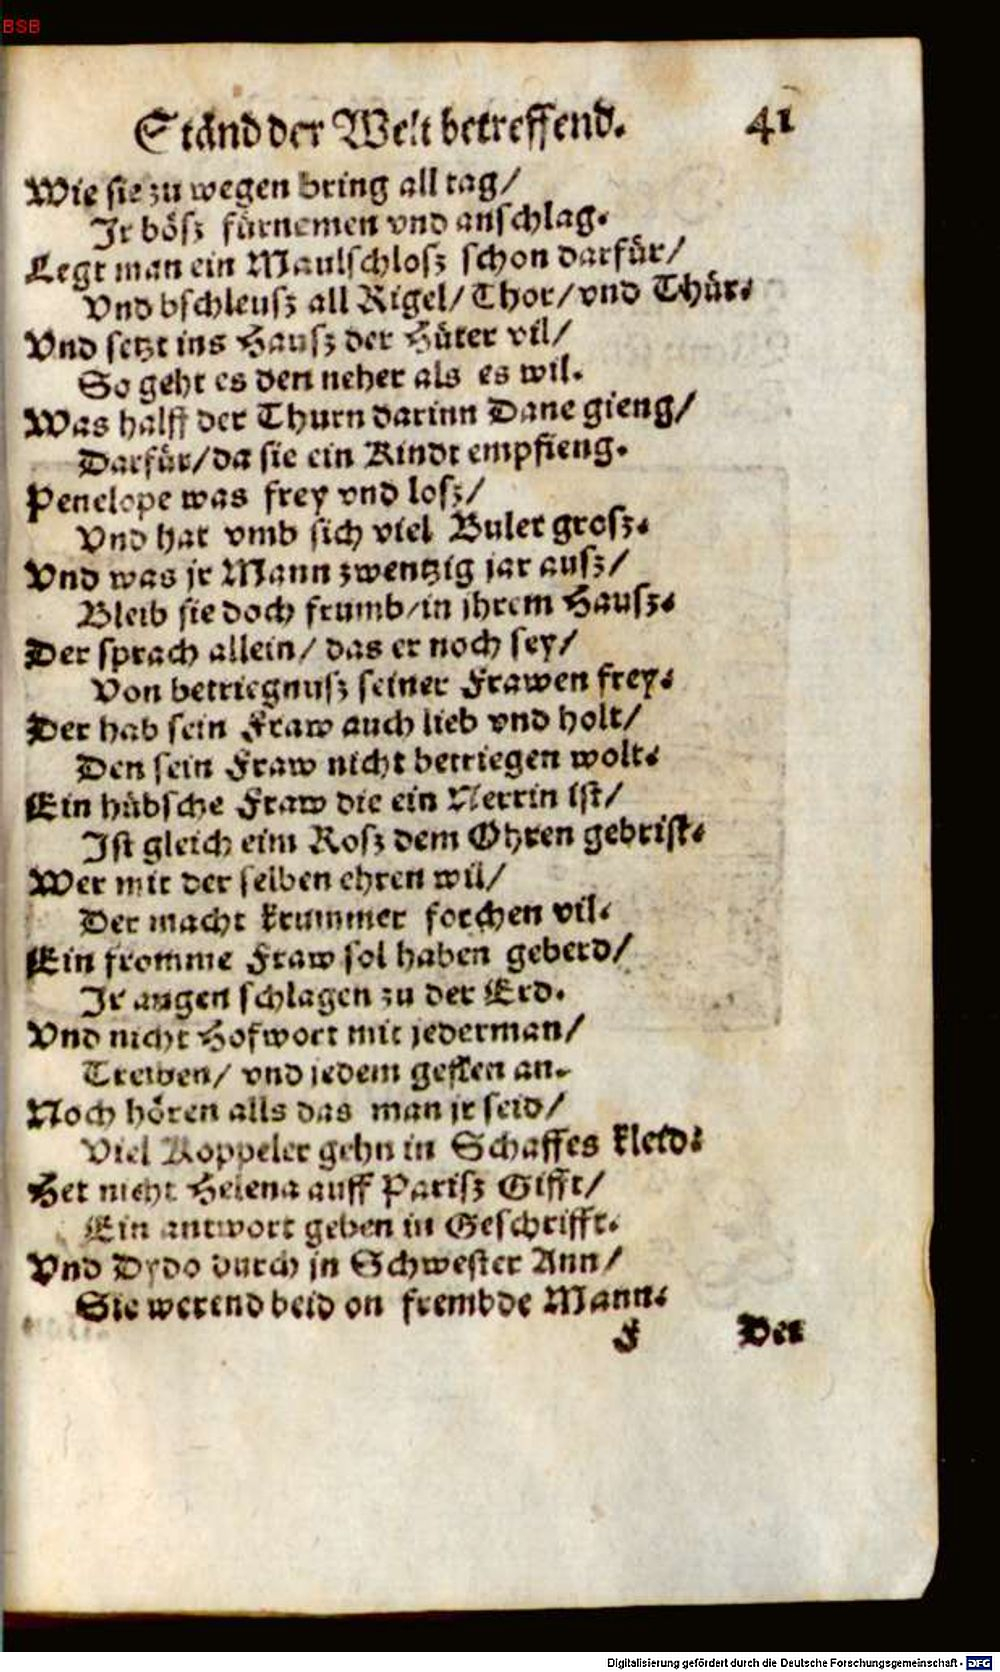 BSB
Ständ der Welt betreffend. 41
Wie sie zu wegen bring all tag/
Jr bösz fürnemen vnd anschlag.
Legt man ein Maulschlosz schon darfür/
Vnd bschleusz all Rigel/ Thor/ vnd Thür.
Vnd setzt ins Hausz der Hüter vil/
So geht es den neher als es wil.
Was halff der Thurn darinn Dane gieng/
Darfür/ da sie ein Kindt empfieng.
Penelope was frey vnd losz/
Vnd hat vmb sich viel Buler grosz.
Vnd was jr Mann zwentzig jar ausz/
Bleib sie doch frumb/ in jhrem Hausz.
Der sprach allein/ das er noch sey/
Von betriegnusz seiner Frawen frey.
Der hab sein Fraw auch lieb vnd holt/
Den sein Fraw nicht betriegen wolt.
Ein hübsche Fraw die ein Nerrin ist/
Ist gleich eim Rosz dem Ohren gebrist.
Wer mit der selben ehren wil/
Der macht krummer forchen vil.
Ein fromme Fraw sol haben geberd/
Jr augen schlagen zu der Erd.
Vnd nicht Hofwort mit jederman/
Treiben/ vnd jedem gefften an.
Noch hören alls das man jr seid/
Viel Koppeler gehn in Schaffes kleid.
Het nicht Helena auff Parisz Gifft/
Ein antwort geben in Geschrifft.
Vnd Dydo durch jn Schwester Ann/
Sie werend beid on frembde Mann.
F Der
Digitalisierung gefördert durch die Deutsche Forschungsgemeinschaft - DFG